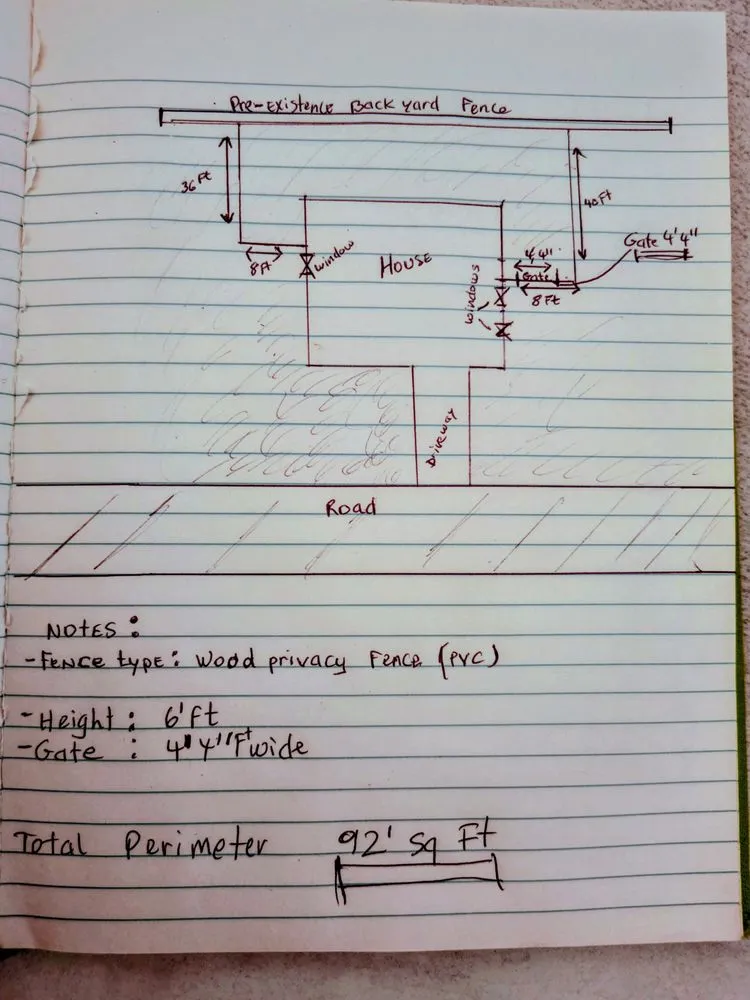 Pre-Existence Back yard Fence
36 Ft
40 Ft
Gate 4'4"
8 Ft
window
House
4'4"
Gate
8 Ft
windows
Driveway
Road
NOTES:
- Fence type: Wood privacy Fence (PVC)
- Height: 6' ft
- Gate : 4" 4'' Ft wide
Total Perimeter 92' Sq Ft